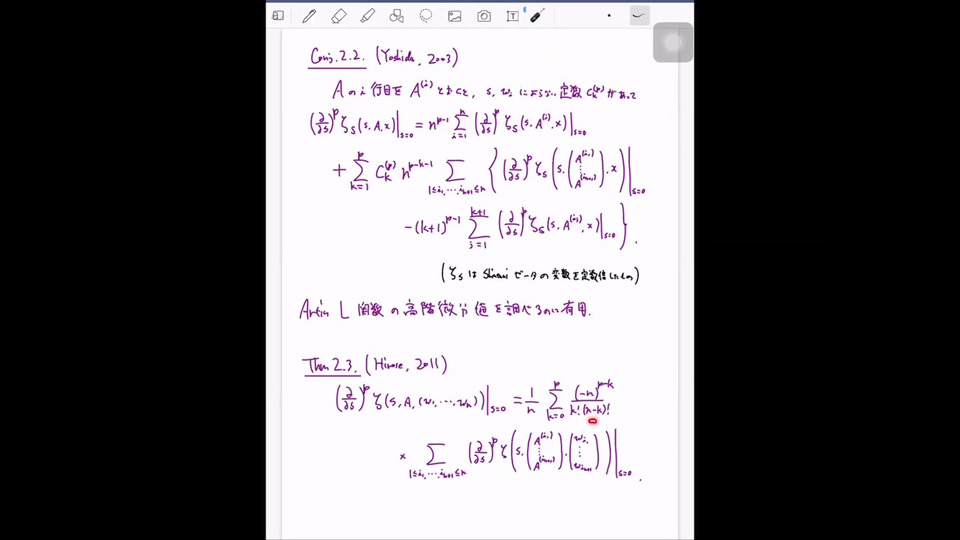 Conj. 2.2. (Yoshida, 2003)
A の i 行目を A^{(i)} とおくと, s, w_i によらない定数 C_k^{(p)} があって
(∂/∂s)^p ζ_S(s, A, x)|_{s=0} = n^{p-1} Σ_{i=1}^{n} (∂/∂s)^p ζ_S(s, A^{(i)}, x)|_{s=0}
+ Σ_{k=1}^{p} C_k^{(p)} n^{p-k-1} Σ_{1≤i_1,…,i_{k+1}≤n} { (∂/∂s)^p ζ_S(s, (A^{(i_1)} ⋮ A^{(i_{k+1})}), x)|_{s=0}
-(k+1)^{p-1} Σ_{j=1}^{k+1} (∂/∂s)^p ζ_S(s, A^{(i_j)}, x)|_{s=0} }.
(ζ_S は Shintani ゼータの変数を定数倍したもの)
Artin L 関数の高階微分値を調べるのに有用.
Thm 2.3. (Hirose, 2011)
(∂/∂s)^p ζ(s, A, (w_1, …, w_n))|_{s=0} = 1/n Σ_{k=0}^{p} (-n)^{p-k}/k!(n-k)!
× Σ_{1≤i_1,…,i_{k+1}≤n} (∂/∂s)^p ζ(s, (A^{(i_1)} ⋮ A^{(i_{k+1})}), (w_{i_1} ⋮ w_{i_{k+1}}))|_{s=0}.